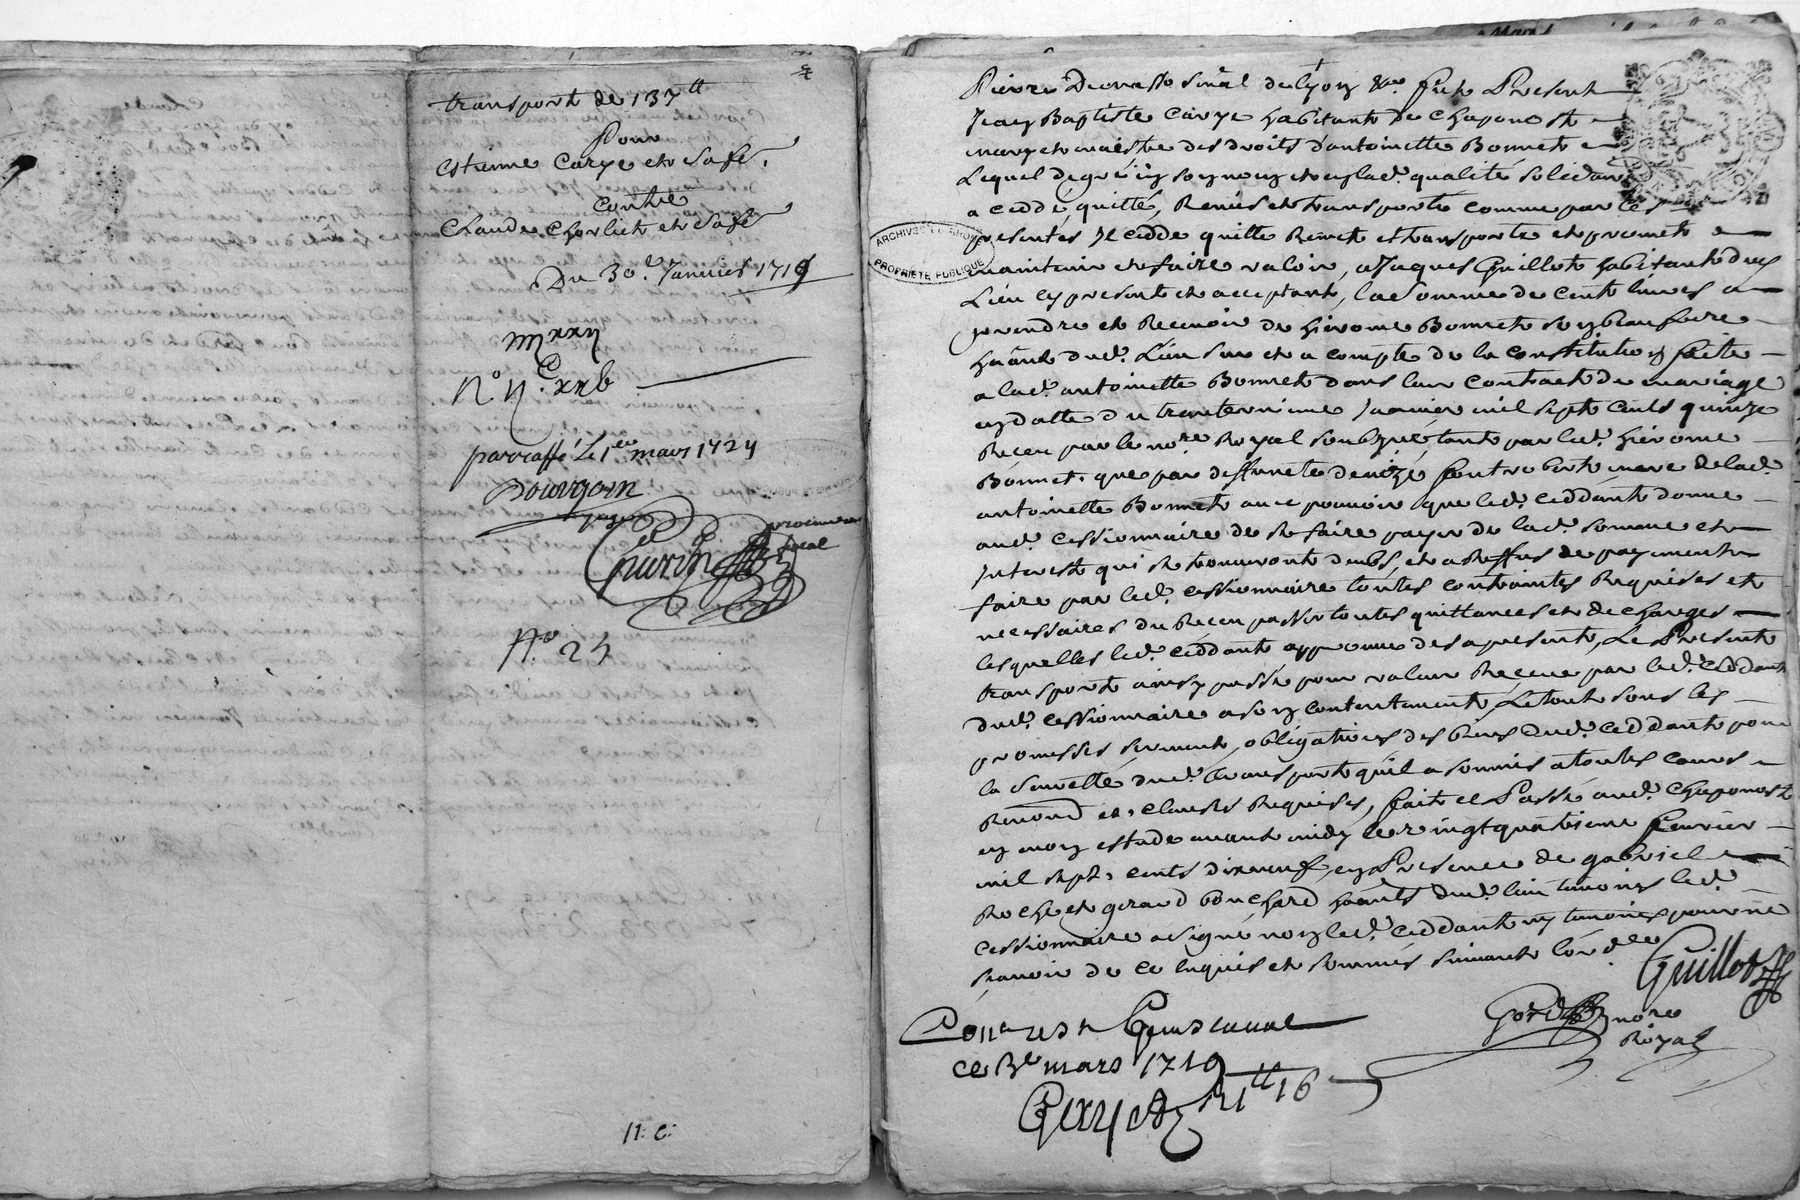 transport de 137tt
Pour
Estienne Carye et Safe.
contre
Claude Chorliet et Safe
Du 30e. Janvier 1719
parraffé le 1er mars 1724
Bourgoin
juge
Guerin
procureur
fiscal
No. 25
11: C:
Pardevant
Jean Baptiste Carye habitant de Chaponost
mary et maistre des droits d'antoinette Bonnet
Lequel de gré en son nom et en lad. qualité solidaire
a ceddé, quitté, Remis et transporté comme par ces
presentes Il cedde quitte Remet et transporte et promet
maintenir et faire valoir, a Jaques Guillot habitant dud.
Lieu icy present et acceptant, la somme de cent livres a
prendre et Recevoir de hierome Bonnet son beaufrere
hãnt dud. Lieu sur et a compte de la constitution faitte
a lad. antoinette Bonnet dans leur contract de mariage
en datte du trante Janvier mil sept cents quinze
Receu par le nore. Royal soubzné tant par led. hierome
Bonnet. que par deffunete denize mere de lad.
antoinette Bonnet avec pouvoir que led. ceddant donne
aud. cessionnaire de se faire payer de lad. somme et
Interest qui se trouveront deubs, et a Reffus de payement
faire par led. cessionnaire toutes contraintes Requises et
necessaires du Receu passer toutes quittances et decharges
lesquelles led. ceddant approuve des apresent, Le Present
transport ainsy passé pour valeur Receue par led. ceddant
dud. cessionnaire a son contentement, Le tout sous les
promesses serment, obligations des biens dud. ceddant pour
la seuretté dud. transport qu'il a soumis a toutes cours
Renond. et. clauses Requises, fait et Passé aud. Chaponost
en mon estude avant midy le vingt quatrieme fevrier
mil sept. cents dixneuf en Presence de gabriel
Roche et girard bouchard hãnts dud. lieu temoins led.
cessionnaire a signé non led. ceddant ny temoins pour ne
scavoir de ce enquis et sommés suivant l'ord.ce
Guillot
nore
Royal
ce 3e mars 1719
ARCHIVES RHONE
PROPRIETE PUBLIQUE